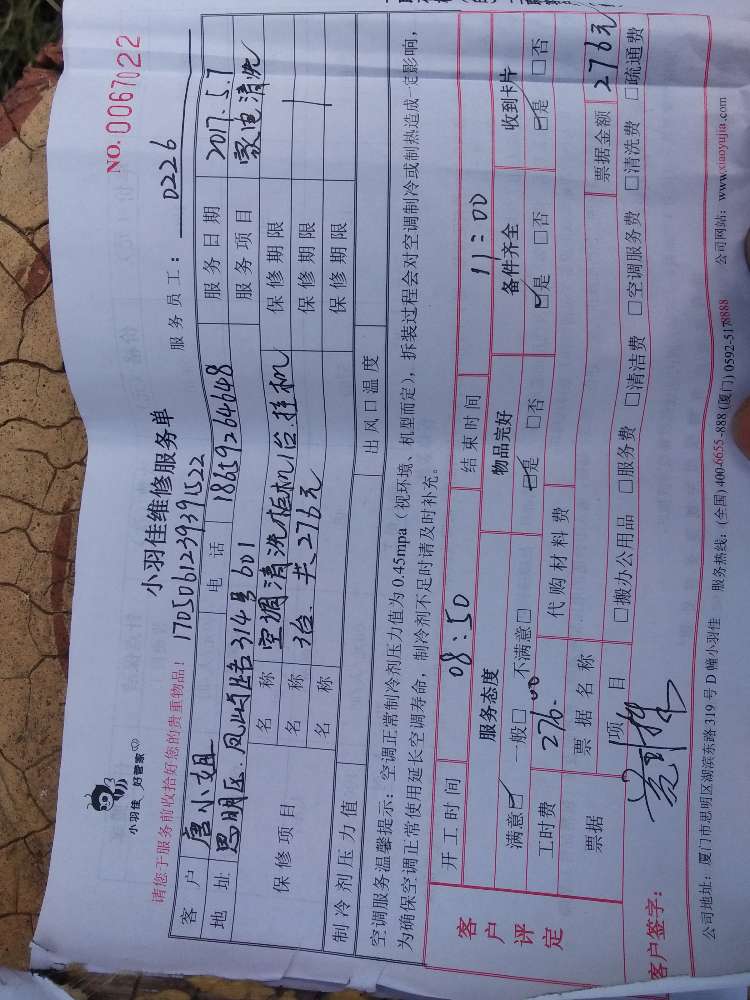 小羽佳 好管家
小羽佳维修服务单
NO. 0067022
请您于服务前收拾好您的贵重物品！ 1705061239391522 服务员工： 0226
客户 唐小姐 电话 18659264648 服务日期 2017.5.7
地址 思明区.凤屿路314号601 服务项目 家电清洗
保修项目 名称 空调清洗柜机1台.挂机 保修期限
名称 3台.共276元 保修期限
名称 保修期限
制冷剂压力值 出风口温度
空调服务温馨提示：空调正常制冷剂压力值为0.45mpa（视环境、机型而定），拆装过程会对空调制冷或制热造成一定影响，
为确保空调正常使用延长空调寿命，制冷剂不足时请及时补充。
客户评定
开工时间 08:50 结束时间 11:00
服务态度 物品完好 备件齐全 收到卡片
满意☑ 一般□ 不满意□ ☑是 □否 ☑是 □否 ☑是 □否
工时费 276.00 代购材料费
票据 票据名称 票据金额 276元
项目 □搬办公用品 □服务费 □清洁费 □空调服务费 □清洗费 □疏通费
客户签字：
公司地址：厦门市思明区湖滨东路319号D幢小羽佳 服务热线：(全国) 400-6655-888 (厦门) 0592-5178888 公司网站：www.xiaoyujia.com